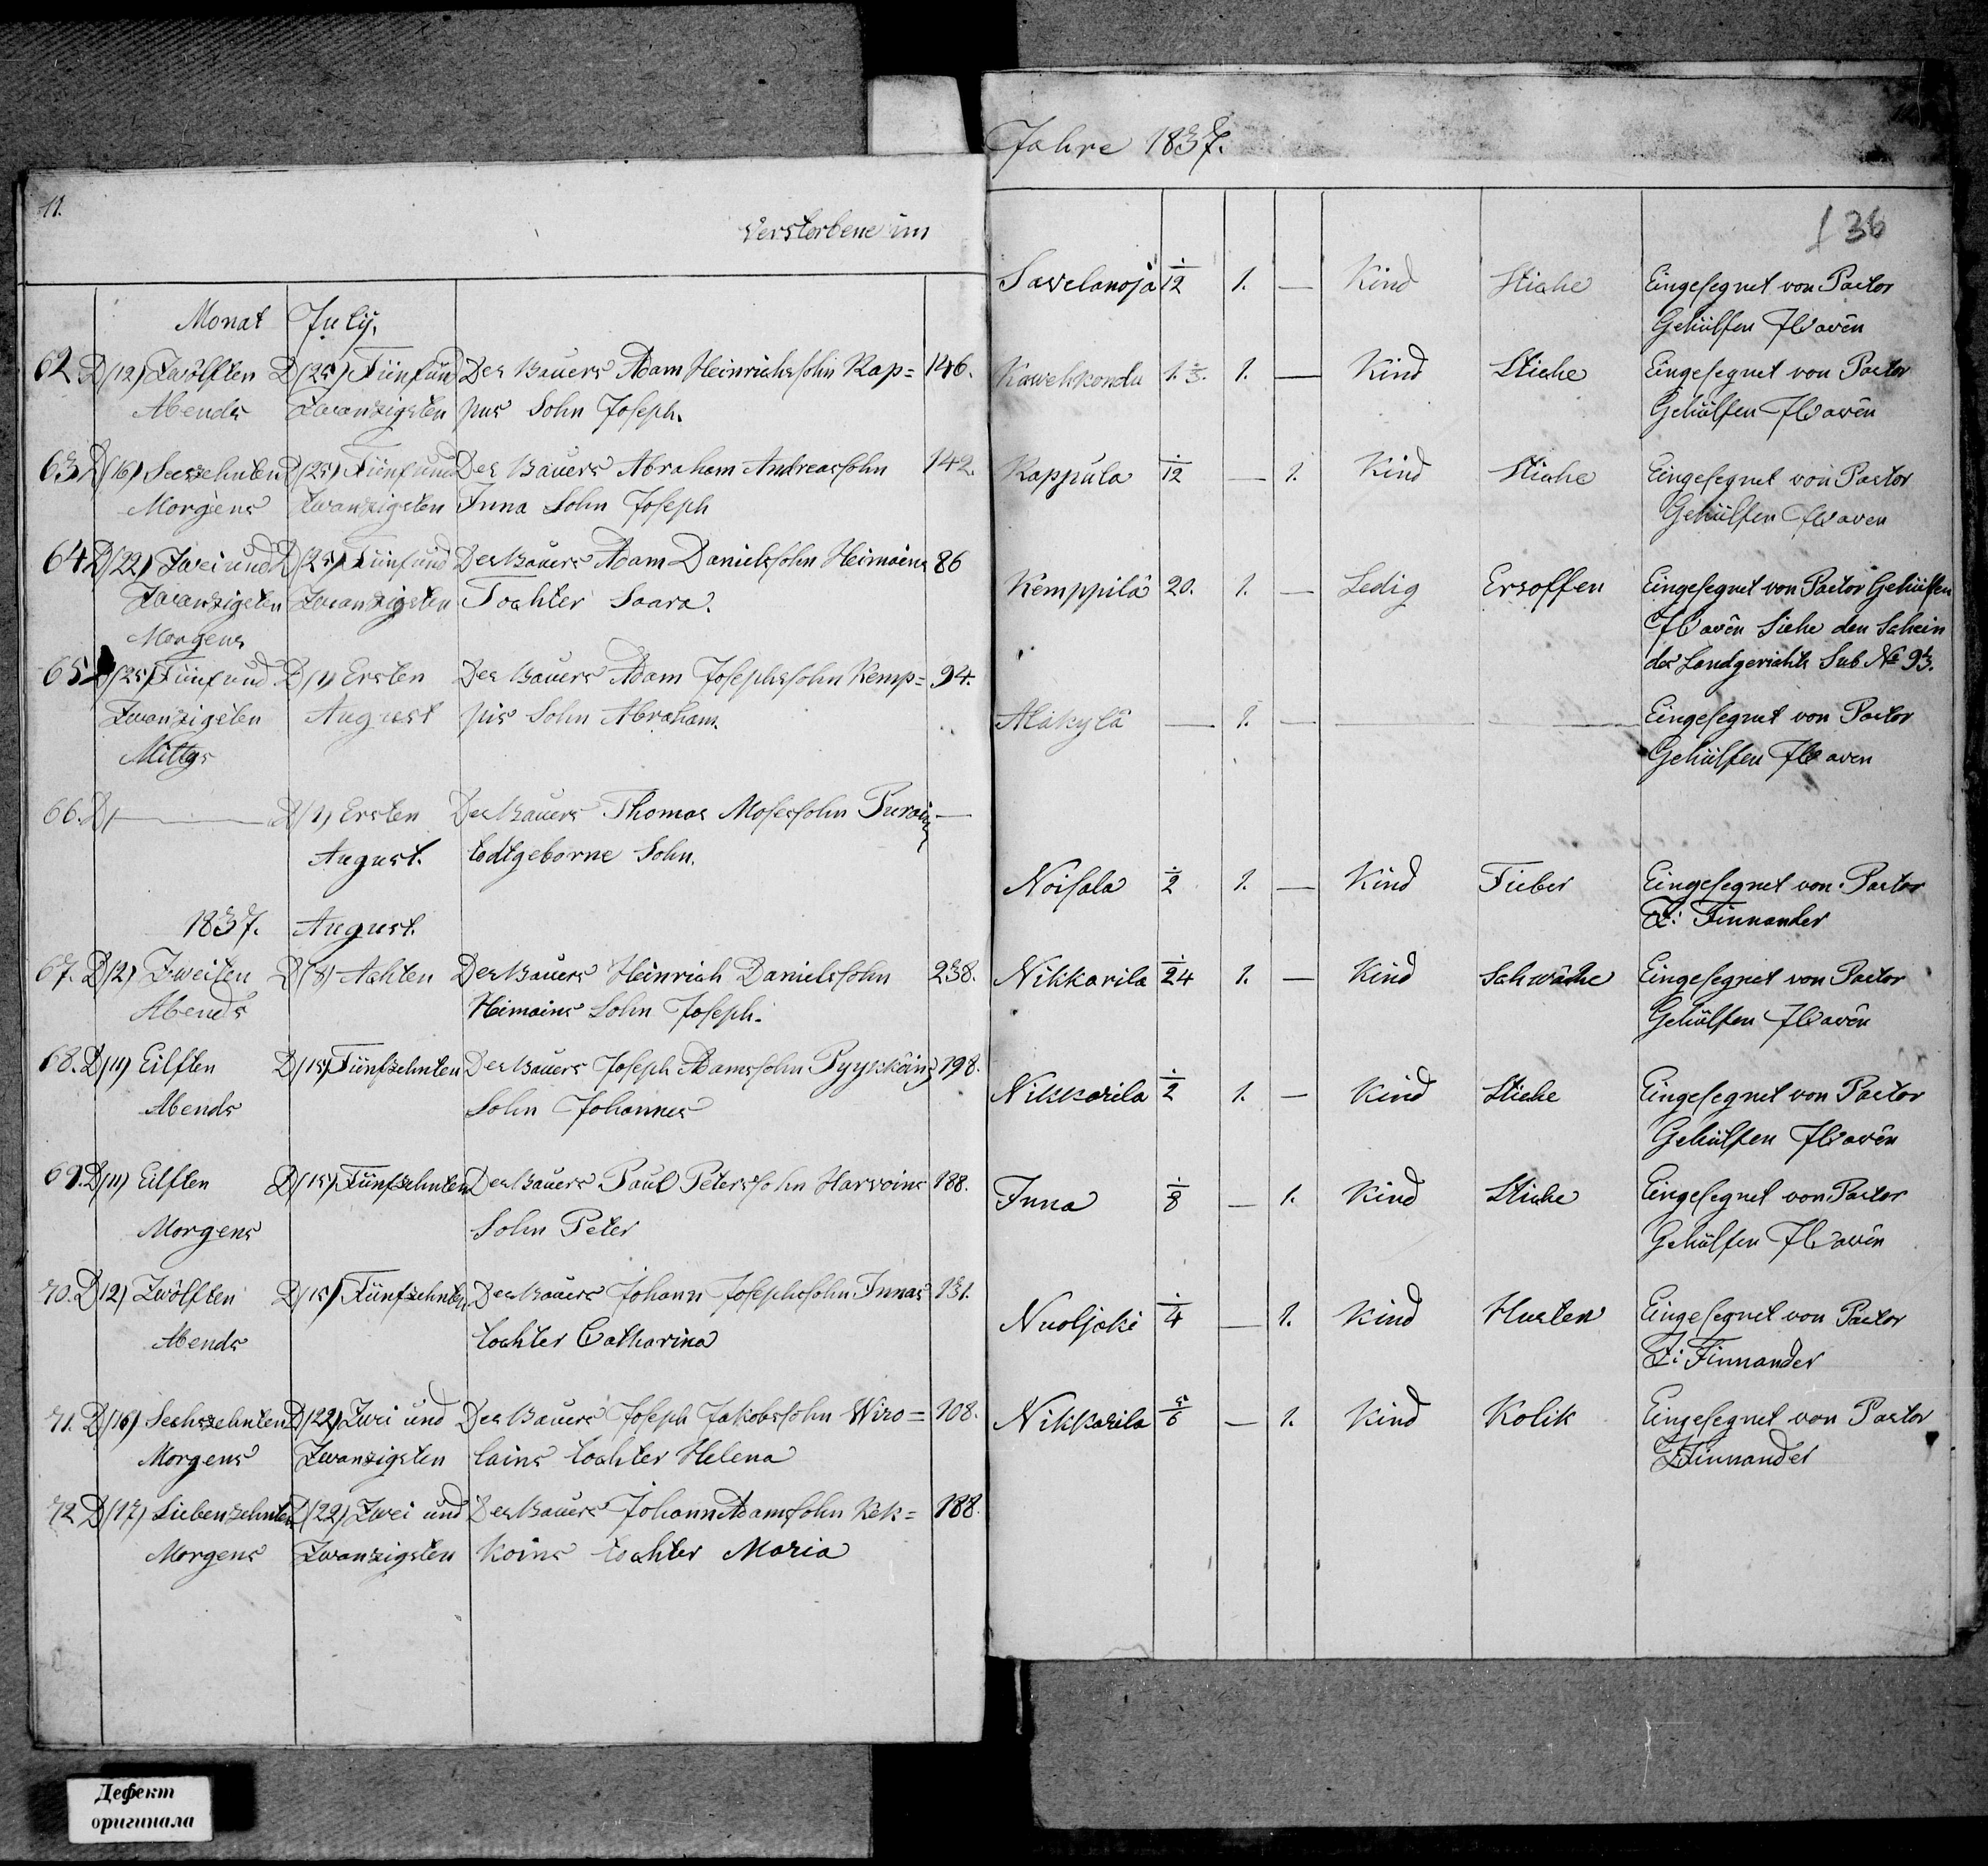 11.
Verstorbene im
Monat July.
62 D(12) Zwölften D(25) Fünf und Des Bauers Adam Heinrichssohn Rap= 146.
Abends Zwanzigsten pus Sohn Joseph.
63 D(16) Sechzehnten D(25) Fünf und Des Bauers Abraham Andreassohn 142.
Morgens Zwanzigsten Inna Sohn Joseph
64 D(22) Zwei und D(25) Fünf und Des Bauers Adam Danielssohn Heimoins 86
Zwanzigsten Zwanzigsten Tochter Saara.
Morgens
65 D(25) Fünf und D(1) Ersten Des Bauers Adam Josephssohn Kemp= 94.
Zwanzigsten August pis Sohn Abraham.
Mittgs
66. D( — D(1) Ersten Des Bauers Thomas Mosessohn —
August. todtgeborne Sohn.
1837. August.
67. D(2) Zweiten D(8) Achten Des Bauers Heinrich Danielssohn 238.
Abends Himoins Sohn Joseph.
68. D(11) Eilften D(15) Fünfzehnten Des Bauers Joseph Adamssohn Pyykköins 198.
Abends Sohn Johannes
69. D(11) Eilften D(15) Fünfzehnten Des Bauers Paul Peterssohn Harvoins 188.
Morgens Sohn Peter
70. D(12) Zwölften D(15) Fünfzehnten Des Bauers Johann Josephssohn Innas 131.
Abends tochter Catharina
71. D(16) Sechszehnten D(22) Zwei und Des Bauers Joseph Jakobssohn Wiro= 108.
Morgens Zwanzigsten lains tochter Helena
72 D(17) Siebenzehnten D(22) Zwei und Des Bauers Johann Adamssohn Kek= 188.
Morgens Zwanzigsten koins tochter Maria
Jahre 1837.
136
Savelanoja 1/12 1. — Kind Stiche Eingesegnet von Pastor
Gehülfen Ilwavên
Kawehkondu 1.1/3. 1. — Kind Stiche Eingesegnet von Pastor
Gehülfen Ilwavên
Rappula 1/12 — 1. Kind Stiche Eingesegnet von Pastor
Gehülfen Ilwaven
Kemppilä 20. 1. — Ledig Ersoffen Eingesegnet von Pastor Gehülfen
Ilwavên Siehe den Schein
des Landgerichts Sub № 93.
Alakylä — 1. — — — Eingesegnet von Pastor
Gehülfen Ilwaven
Noisala 1/2 1. — Kind Fieber Eingesegnet von Pastor
Z: Finnander
Nikkarila 1/24 1. — Kind Schwäche Eingesegnet von Pastor
Gehülfen Ilwavên
Nikkarila 1/2 1. — Kind Stiche Eingesegnet von Pastor
Gehülfen Ilwavên
Inna 1/8 — 1. Kind Stiche Eingesegnet von Pastor
Gehülfen Ilwavên
Nuoljoki 1/4 — 1. Kind Husten Eingesegnet von Pastor
Z: Finnander
Nikkarila 5/6 — 1. Kind Kolik Eingesegnet von Pastor
Z Finnander
Дефект
оригинала